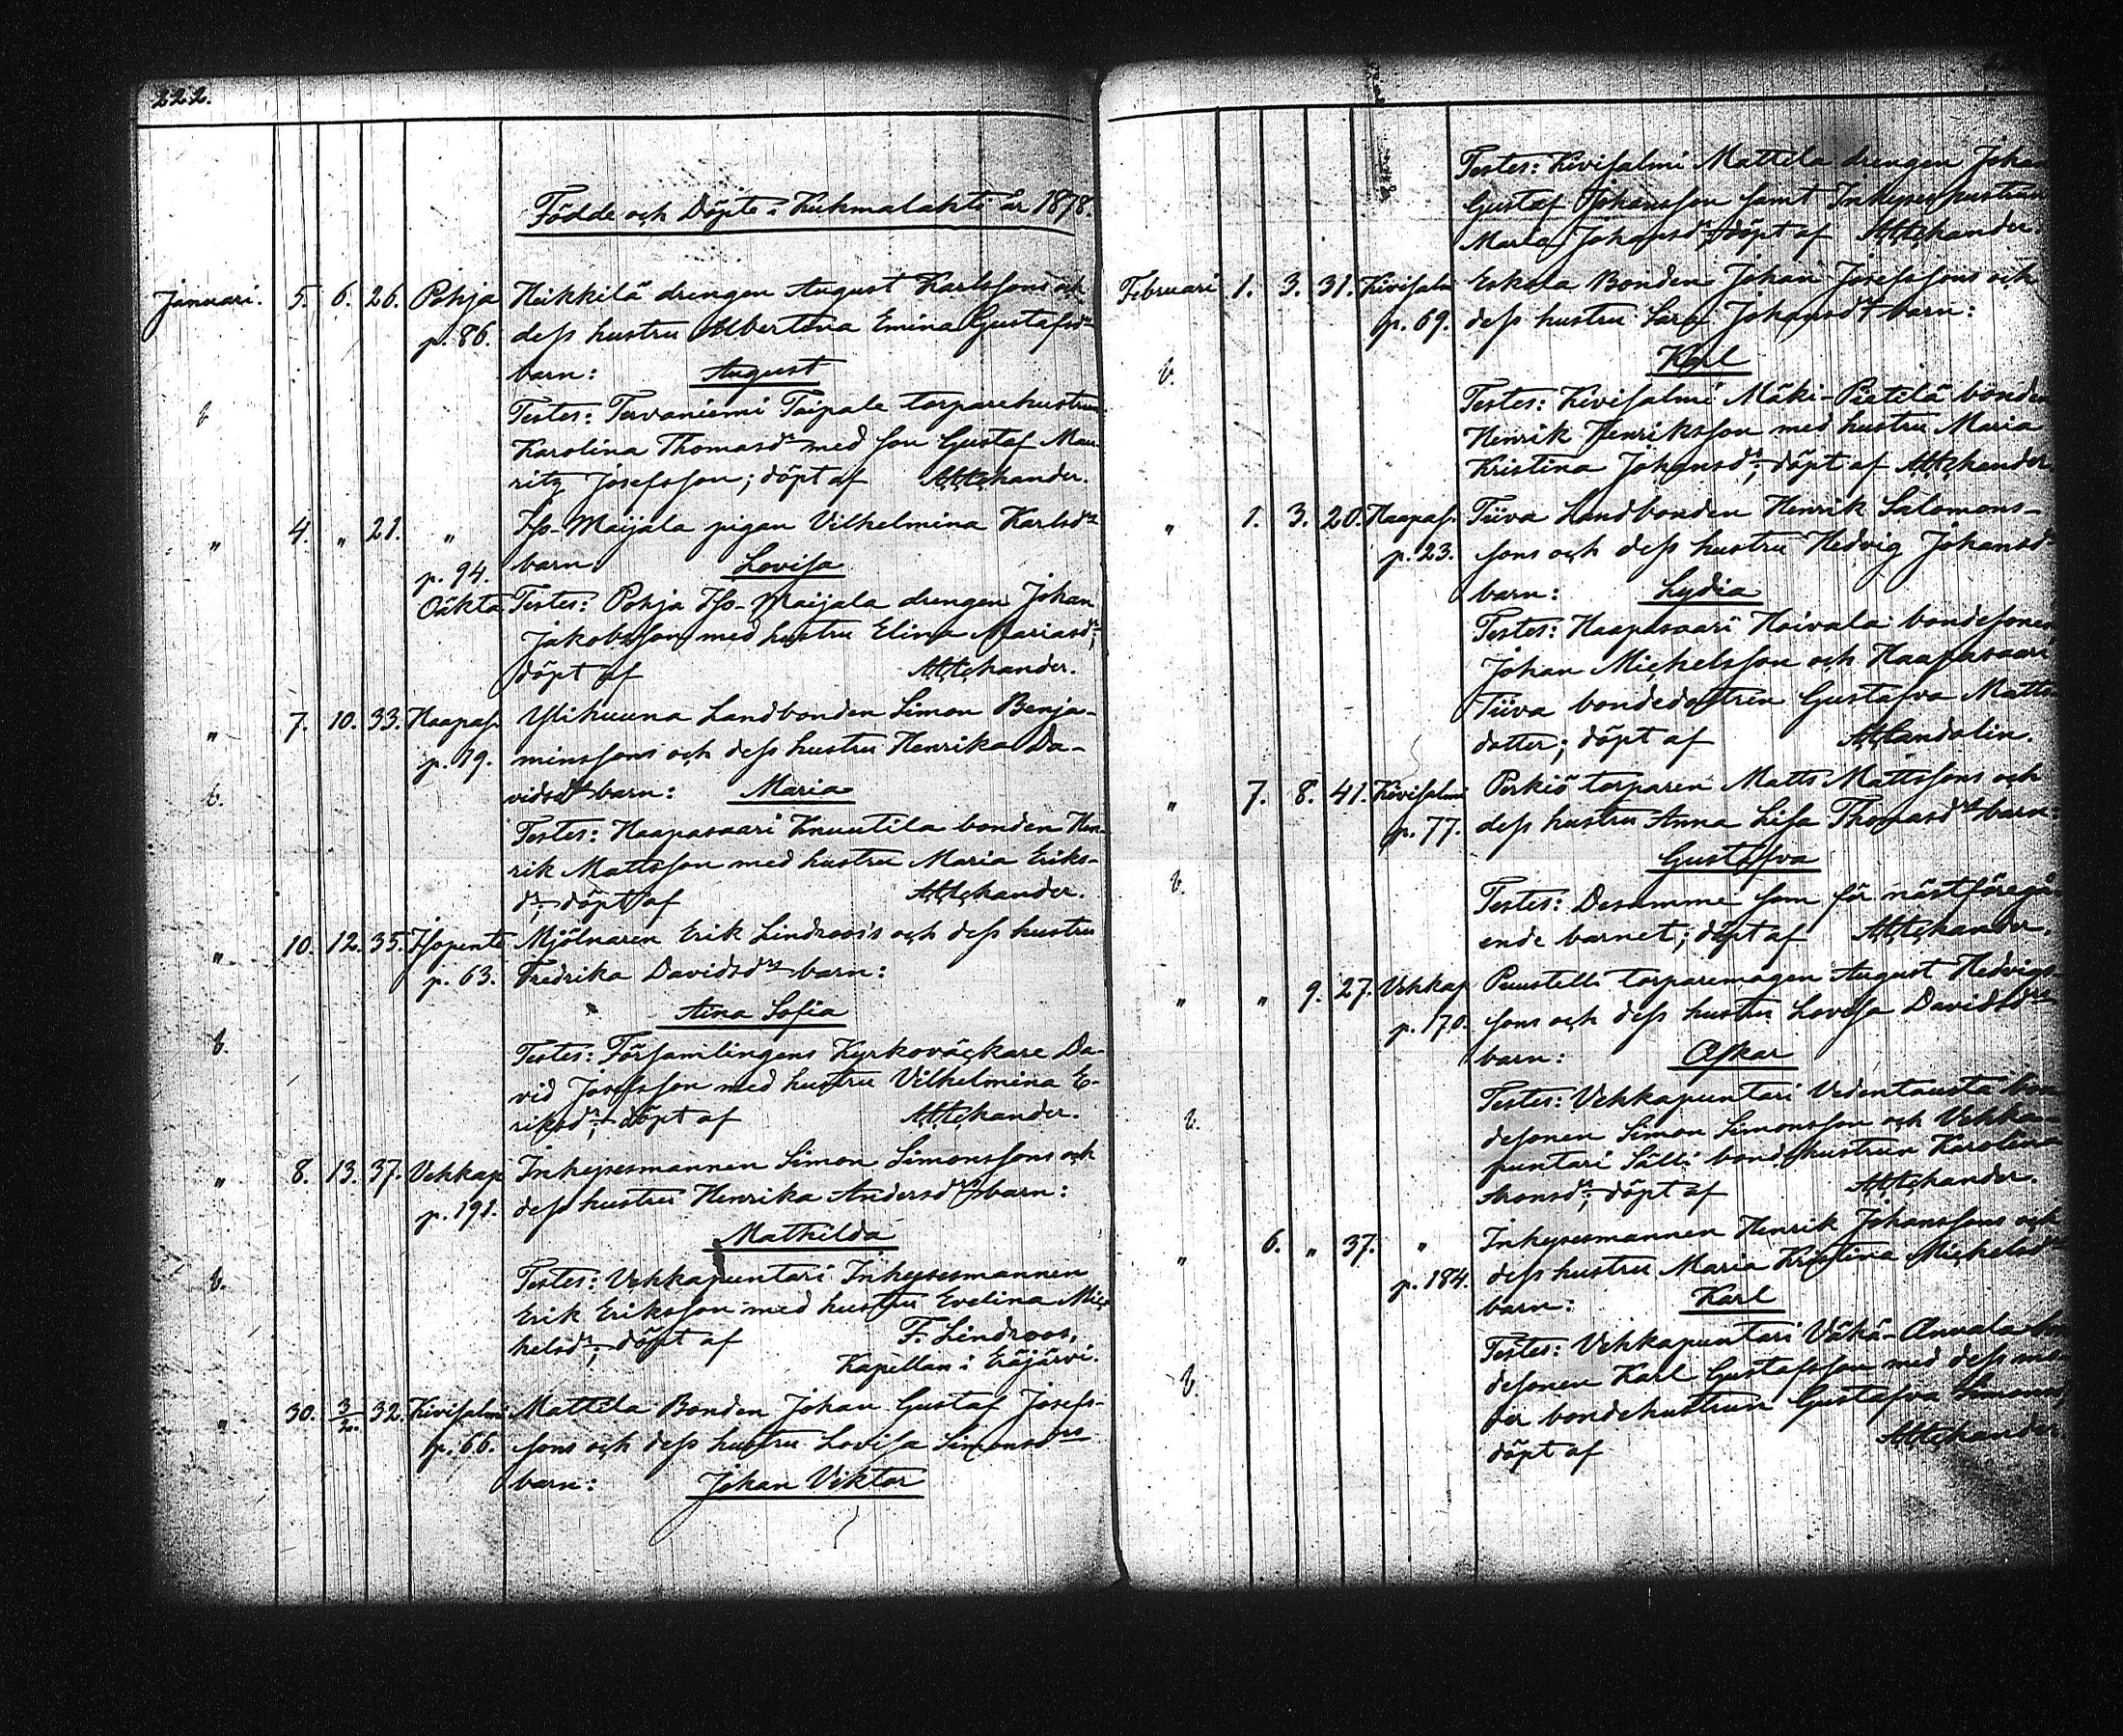 222.
Födde och Döpte i Kuhmalahti år 1878.
Januari. 5. 6. 26. Pohja Heikkilä drengen August Karlssons och
p. 86. dess hustru Albertina Emina Gustafsd:rs
barn: August
Testes: Tervaniemi Taipale torparehustrun
Karolina Thomasd:r med son Gustaf Mau-
ritz Josefsson; döpt af
„ 4. „ 21. „ Iso-Maijala pigan Vilhelmina Karlsd:rs
p. 94. barn Lovisa
Oäkta Testes: Pohja Iso-Maijala drengen Johan
Jakobsson med hustru Elina Mariasd:r;
döpt af
„ 7. 10. 33. Haapas. Ylikuuna Landbonden Simon Benja-
p. 19. minssons och dess hustru Henrika Da-
b. vidsd:rs barn: Maria
Testes: Haapasaari Knuutila bonden Hen-
rik Mattsson med hustru Maria Eriks-
d:r; döpt af
„ 10. 12. 35. Isopentti Mjölnaren Erik Lindroos's och dess hustru
p. 63. Fredrika Davidsd:rs barn:
Aina Sofia
b. Testes: Församlingens Kyrkoväckare Da-
vid Josefsson med hustru Vilhelmina E-
riksd:r; döpt af
„ 8. 13. 37. Vehkap Inhysesmannen Simon Simonssons och
p. 191. dess hustru Henrika Andersd:rs barn:
Mathilda
b. Testes: Vehkapuntari Inhysesmannen
Erik Eriksson med hustru Evelina Mic-
helsd:r; döpt af F. Lindroos,
Kapellan i Eräjärvi.
„ 30. 3/2. 32. Kivisalmi Mattila Bonden Johan Gustaf Josefs-
p. 66. sons och dess hustru Lovisa Simonsd:rs
barn: Johan Viktor
Testes: Kivisalmi Mattila drengen Joha
Gustaf Johansson samt Inhyseshustrun
Maria Johansd:r; döpt af
Februari 1. 3. 31. Kivisalm Eskola Bonden Johan Josefssons och
p. 69. dess hustru Sara Johansd:rs barn:
b. Karl
Testes: Kivisalmi Mäki-Pietilä bonden
Henrik Henriksson med hustru Maria
Kristina Johansd:r; döpt af
„ 1. 3. 20. Haapas. Tiiva Landbonden Henrik Salomons-
p. 23. sons och dess hustru Hedvig Johansd
barn: Lydia
Testes: Haapasaari Hoivala bondesonen
Johan Michelsson och Haapasaari
Tiiva bondedottren Gustafva Matts
dotter; döpt af
„ 7. 8. 41. Kivisalmi Perkiö torparen Matts Mattssons och
p. 77. dess hustru Anna Lisa Thomasd:rs barn:
Gustafva
b. Testes: Desamme som för nästföregå-
ende barnet; döpt af
„ „ 9. 27. Vehkap Puustelli torparemågen August Hedvigs-
p. 170. sons och dess hustru Lovisa Davidsd:rs
barn: Oskar
Testes: Vehkapuntari Vedentausta bon
b. desonen Simon Simonsson och Vehka-
puntari Sälli bondehustrun Karolina
Aronsd:r; döpt af
„ 6. „ 37. „ Inhysesmannen Henrik Johanssons och
p. 184. dess hustru Maria Kristina Michelsd:rs
barn: Karl
Testes: Vehkapuntari Vähä-Anvala bon
b desonen Karl Gustafsson med dess mo-
der bondehustrun Gustafva Simons
döpt af